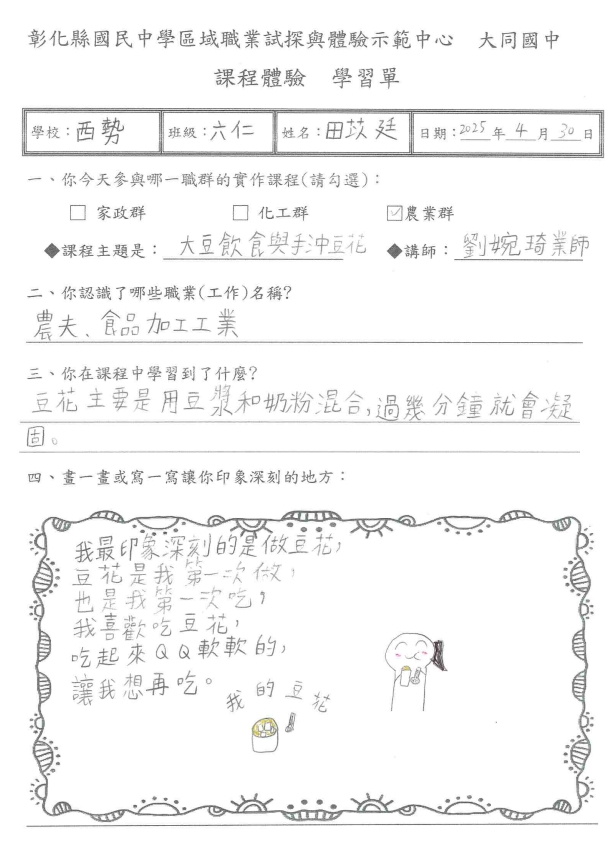 彰化縣國民中學區域職業試探與體驗示範中心　大同國中
課程體驗　學習單
學校：西勢　班級：六仁　姓名：田苡廷　日期：2025年4月30日
一、你今天參與哪一職群的實作課程(請勾選)：
□ 家政群　□ 化工群　☑農業群
◆課程主題是：大豆飲食與手沖豆花　◆講師：劉婉琦業師
二、你認識了哪些職業(工作)名稱?
農夫、食品加工工業
三、你在課程中學習到了什麼?
豆花主要是用豆漿和奶粉混合,過幾分鐘就會凝
固。
四、畫一畫或寫一寫讓你印象深刻的地方：
我最印象深刻的是做豆花,
豆花是我第一次做,
也是我第一次吃,
我喜歡吃豆花,
吃起來QQ軟軟的,
讓我想再吃。
我的豆花